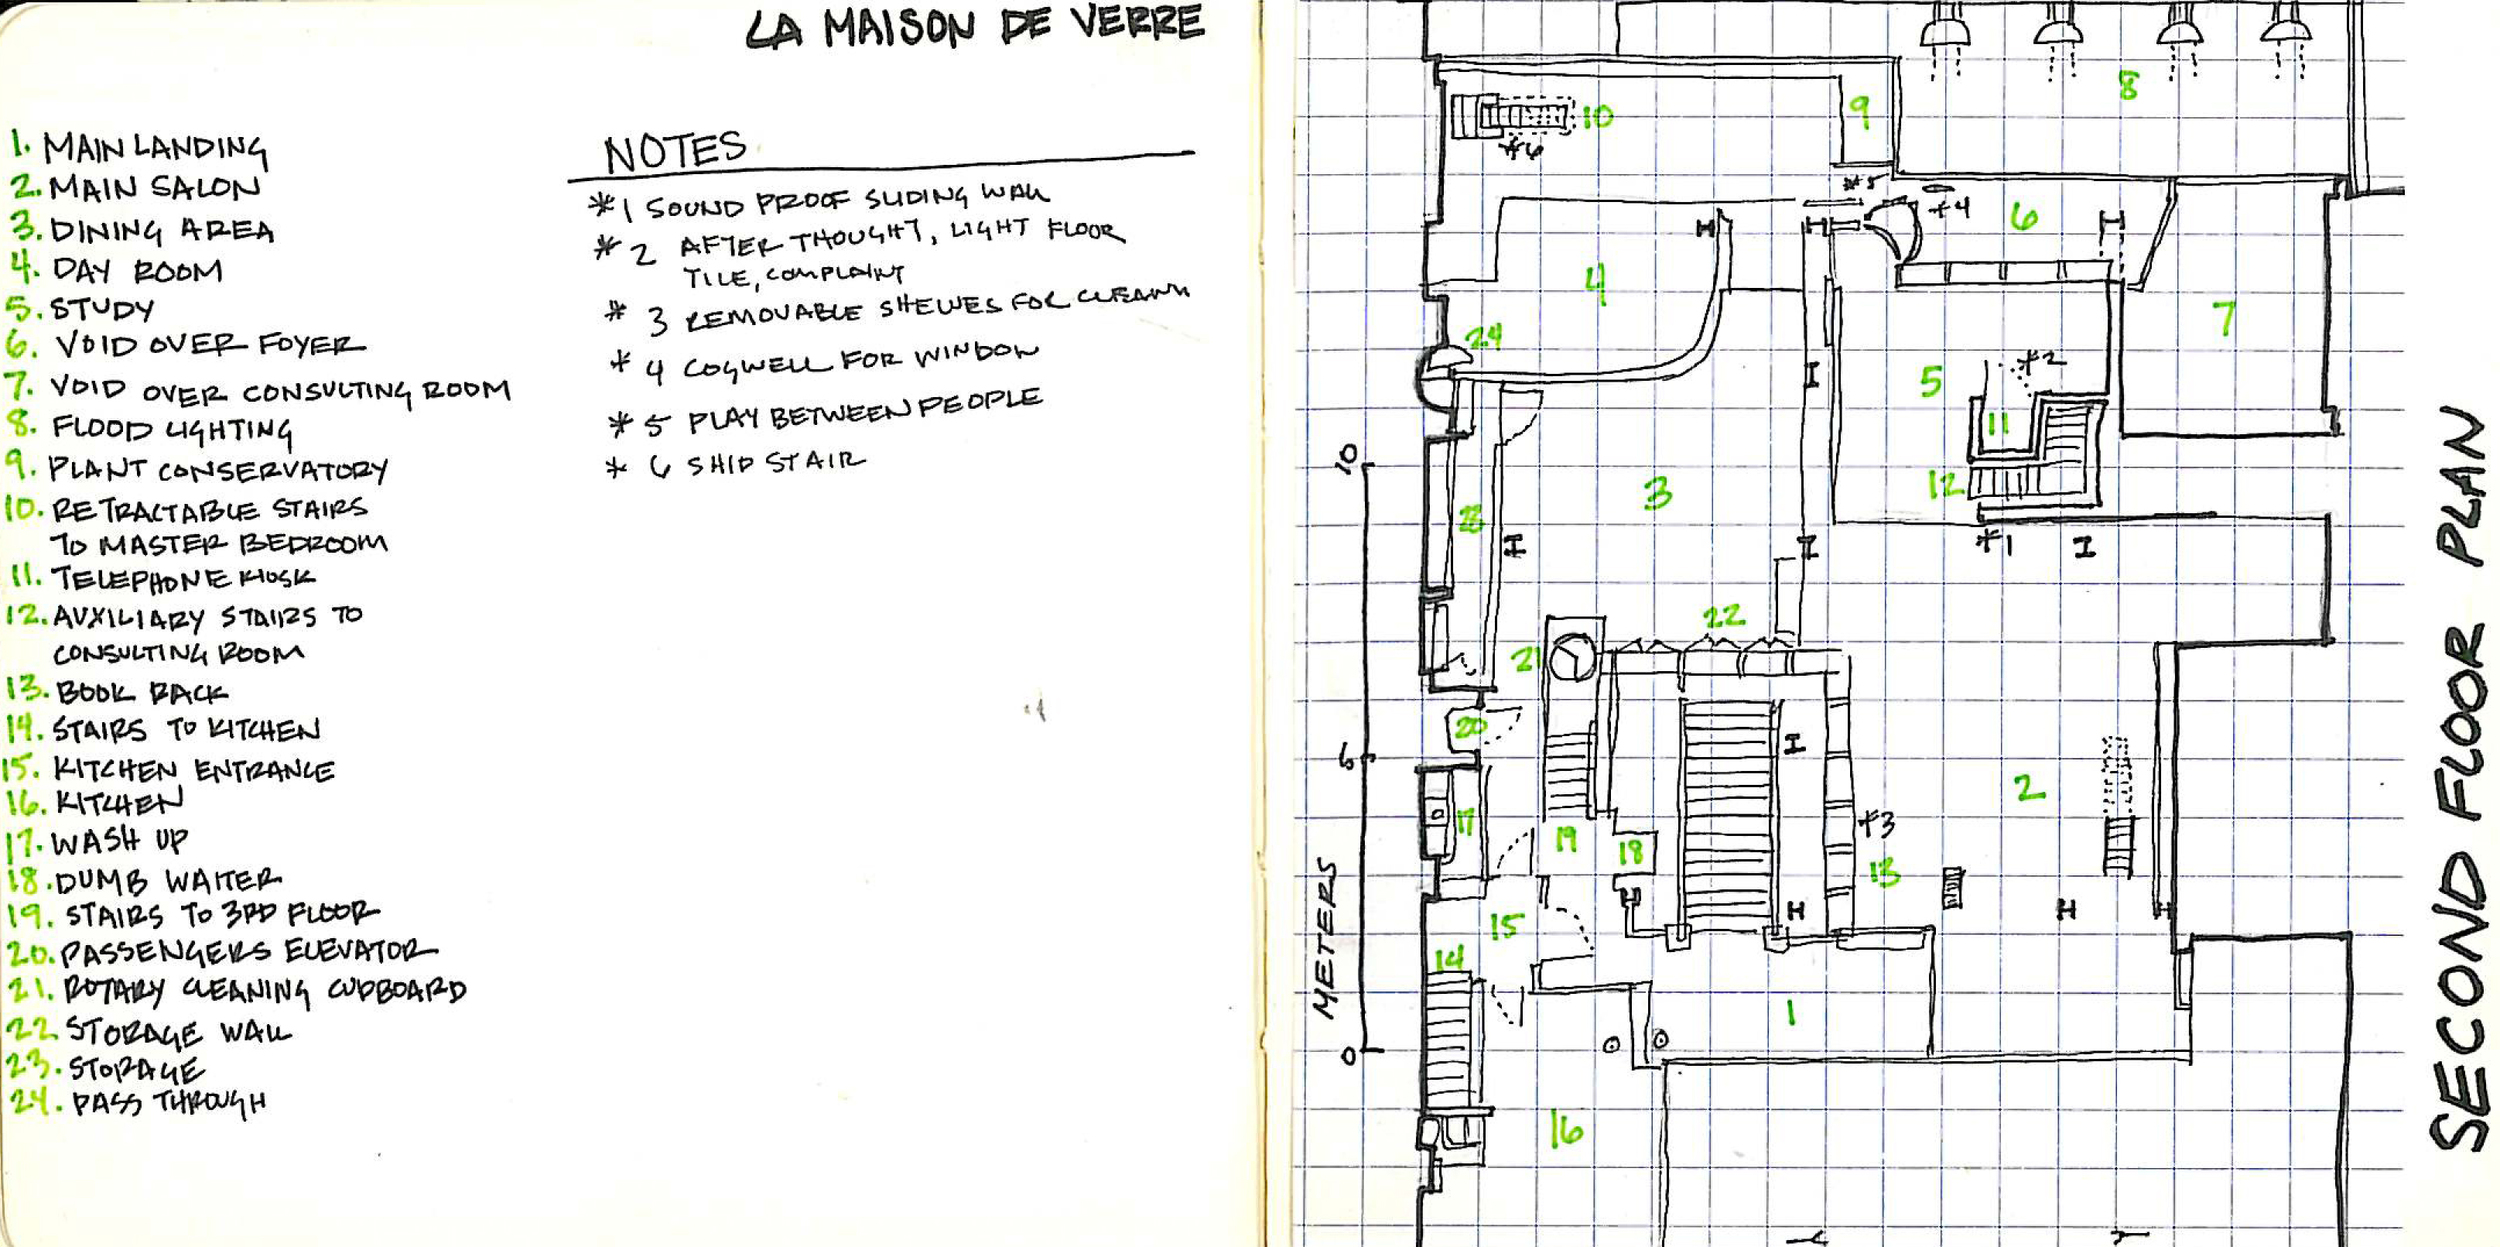 LA MAISON DE VERRE
1. MAIN LANDING
2. MAIN SALON
3. DINING AREA
4. DAY ROOM
5. STUDY
6. VOID OVER FOYER
7. VOID OVER CONSULTING ROOM
8. FLOOD LIGHTING
9. PLANT CONSERVATORY
10. RETRACTABLE STAIRS
TO MASTER BEDROOM
11. TELEPHONE KIOSK
12. AUXILIARY STAIRS TO
CONSULTING ROOM
13. BOOK RACK
14. STAIRS TO KITCHEN
15. KITCHEN ENTRANCE
16. KITCHEN
17. WASH UP
18. DUMB WAITER
19. STAIRS TO 3RD FLOOR
20. PASSENGERS ELEVATOR
21. ROTARY CLEANING CUPBOARD
22 STORAGE WALL
23. STORAGE
24. PASS THROUGH
NOTES
*1 SOUND PROOF SLIDING WALL
*2 AFTER THOUGHT, LIGHT FLOOR
TILE, COMPLAINT
*3 REMOVABLE SHELVES FOR
*4 COGWELL FOR WINDOW
*5 PLAY BETWEEN PEOPLE
*6 SHIP STAIR
8
10
9
*6
*5
*4
6
4
7
24
*2
5
11
10
3
12
23
*1
22
21
20
5
2
17
19
18
*3
13
15
14
METERS
1
0
16
SECOND FLOOR PLAN